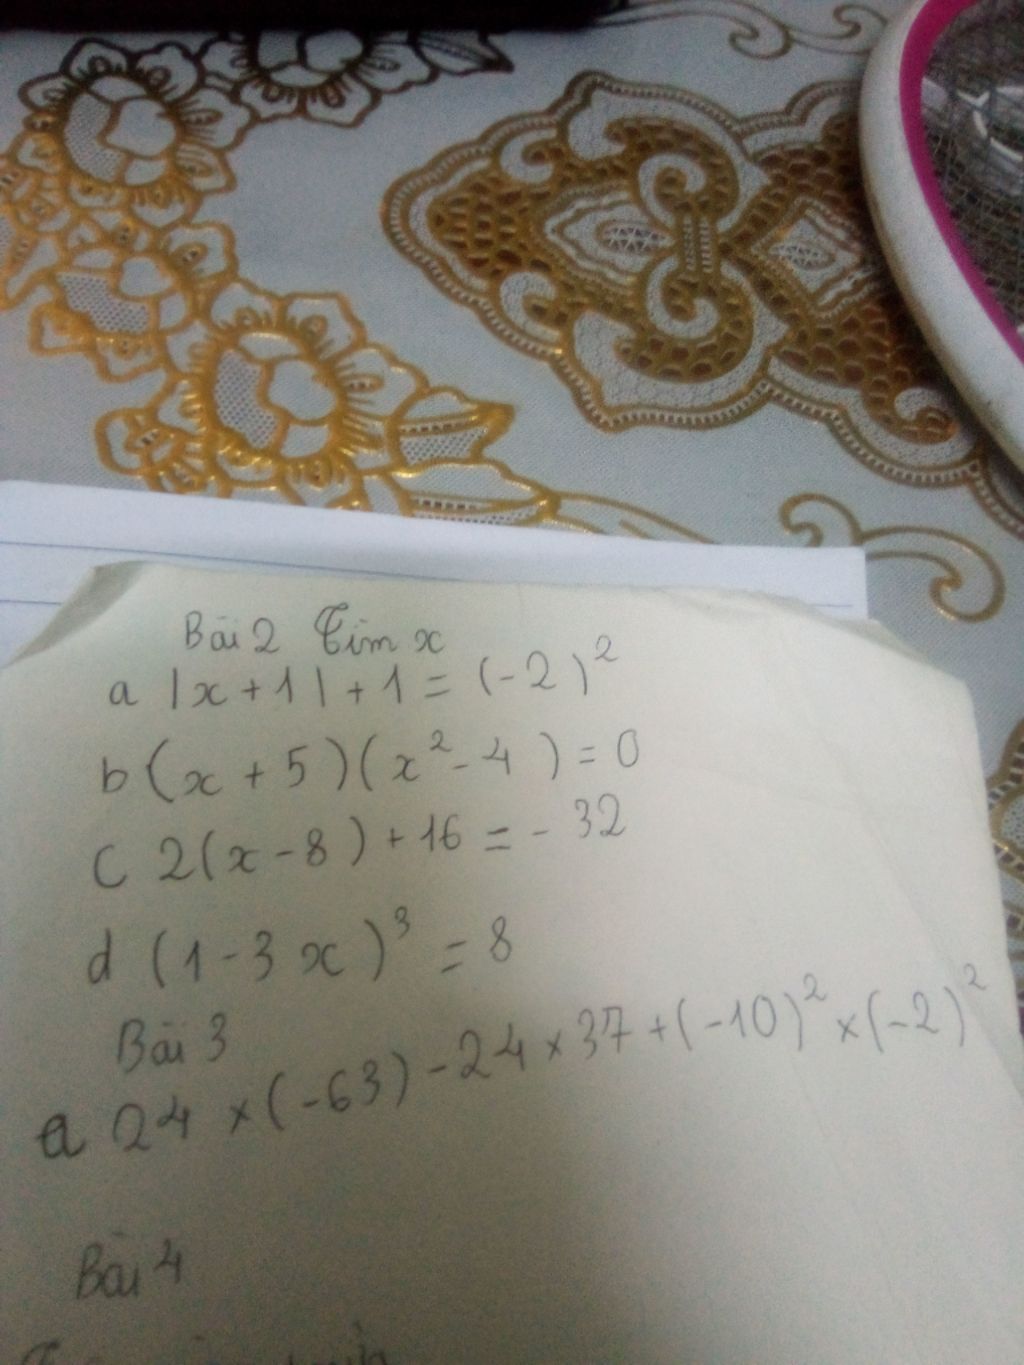 Bài 2 Tìm x
a |x + 1| + 1 = (-2)²
b (x + 5)(x² - 4) = 0
c 2(x - 8) + 16 = - 32
d (1 - 3x)³ = 8
Bài 3
a 24 × (-63) - 24 × 37 + (-10)² × (-2)²
Bài 4